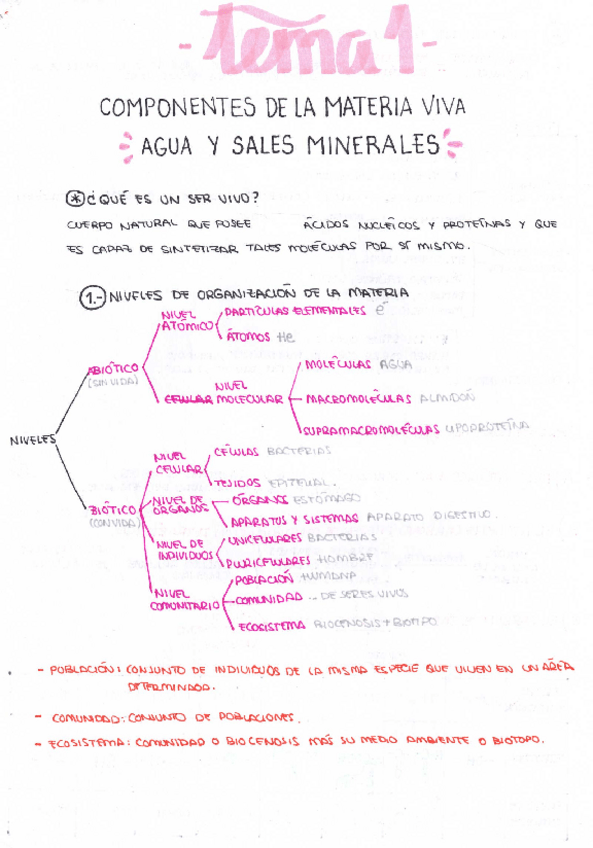 -tema 1-
COMPONENTES DE LA MATERIA VIVA
AGUA Y SALES MINERALES
* ¿QUÉ ES UN SER VIVO?
CUERPO NATURAL QUE POSEE ÁCIDOS NUCLÉICOS Y PROTEÍNAS Y QUE
ES CAPAZ DE SINTETIZAR TALES MOLÉCULAS POR SÍ MISMO.
1.- NIVELES DE ORGANIZACIÓN DE LA MATERIA
NIVELES
ABIÓTICO
(SIN VIDA)
NIVEL
ATÓMICO
PARTÍCULAS ELEMENTALES e⁻
ÁTOMOS He
NIVEL
CELULAR MOLECULAR
MOLÉCULAS AGUA
MACROMOLÉCULAS ALMIDÓN
SUPRAMACROMOLÉCULAS LIPOPROTEÍNA
BIÓTICO
(CON VIDA)
NIVEL
CELULAR
CÉLULAS BACTERIAS
TEJIDOS EPITELIAL.
NIVEL DE
ÓRGANOS
ÓRGANOS ESTÓMAGO
APARATOS Y SISTEMAS APARATO DIGESTIVO.
NIVEL DE
INDIVIDUOS
UNICELULARES BACTERIAS
PLURICELULARES HOMBRE
NIVEL
COMUNITARIO
POBLACIÓN HUMANA
COMUNIDAD ... DE SERES VIVOS
ECOSISTEMA BIOCENOSIS + BIOTOPO
- POBLACIÓN: CONJUNTO DE INDIVIDUOS DE LA MISMA ESPECIE QUE VIVEN EN UN ÁREA
DETERMINADA.
- COMUNIDAD: CONJUNTO DE POBLACIONES.
- ECOSISTEMA: COMUNIDAD O BIOCENOSIS MÁS SU MEDIO AMBIENTE O BIOTOPO.